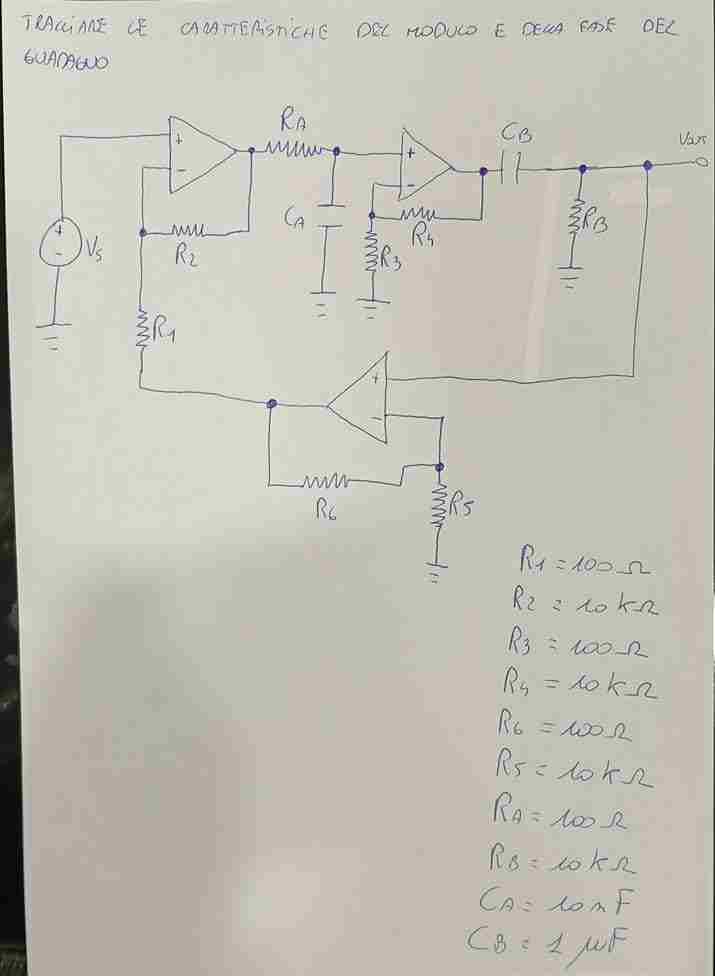 TRACCIARE LE CARATTERISTICHE DEL MODULO E DELLA FASE DEL
GUADAGNO
RA
CB
Vout
+
-
+
-
CA
R4
RB
+
-
VS
R2
R3
R1
+
-
R6
R5
R1 = 100 Ω
R2 = 10 kΩ
R3 = 100 Ω
R4 = 10 kΩ
R6 = 100 Ω
R5 = 10 kΩ
RA = 100 Ω
RB = 10 kΩ
CA = 10 nF
CB = 1 μF